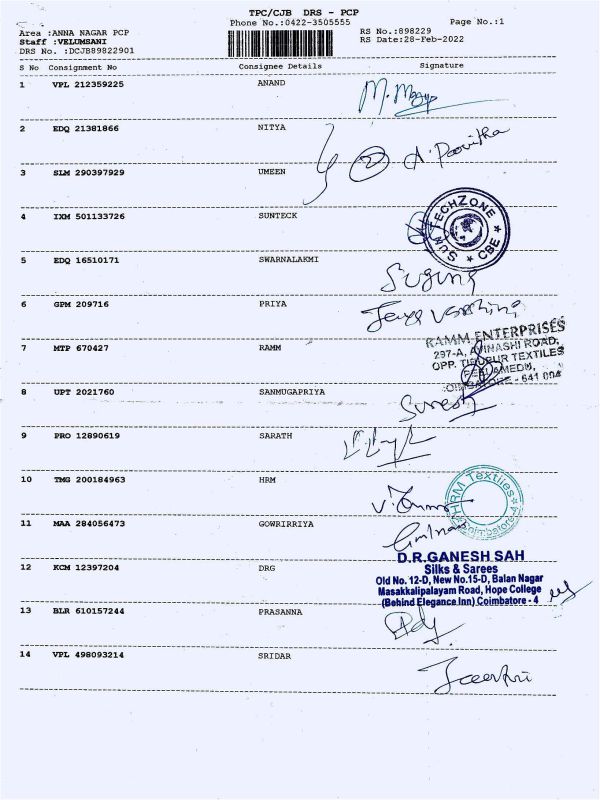 TPC/CJB DRS - PCP
Area :ANNA NAGAR PCP
Phone No.:0422-3505555
Page No.:1
Staff :VELUMSANI
RS No.:898229
DRS No. :DCJB89822901
RS Date:28-Feb-2022
S No Consignment No Consignee Details Signature
1 VPL 212359225 ANAND
2 EDQ 21381866 NITYA
2
3 SLM 290397929 UMEEN
4 IXM 501133726 SUNTECK
SUN TECHZONE ★ CBE ★
5 EDQ 16510171 SWARNALAKMI
6 GPM 209716 PRIYA
7 MTP 670427 RAMM
RAMM ENTERPRISES
297-A, AVINASHI ROAD,
OPP. TIRUPUR TEXTILES
PEELAMEDU,
COIMBATORE - 641 004
8 UPT 2021760 SANMUGAPRIYA
Suresh
9 PRO 12890619 SARATH
10 TMG 200184963 HRM
HRM Textiles
Coimbatore-4
11 MAA 284056473 GOWRIRRIYA
12 KCM 12397204 DRG
D.R.GANESH SAH
Silks & Sarees
Old No. 12-D, New No.15-D, Balan Nagar
Masakkalipalayam Road, Hope College
(Behind Elegance Inn) Coimbatore - 4
13 BLR 610157244 PRASANNA
14 VPL 498093214 SRIDAR